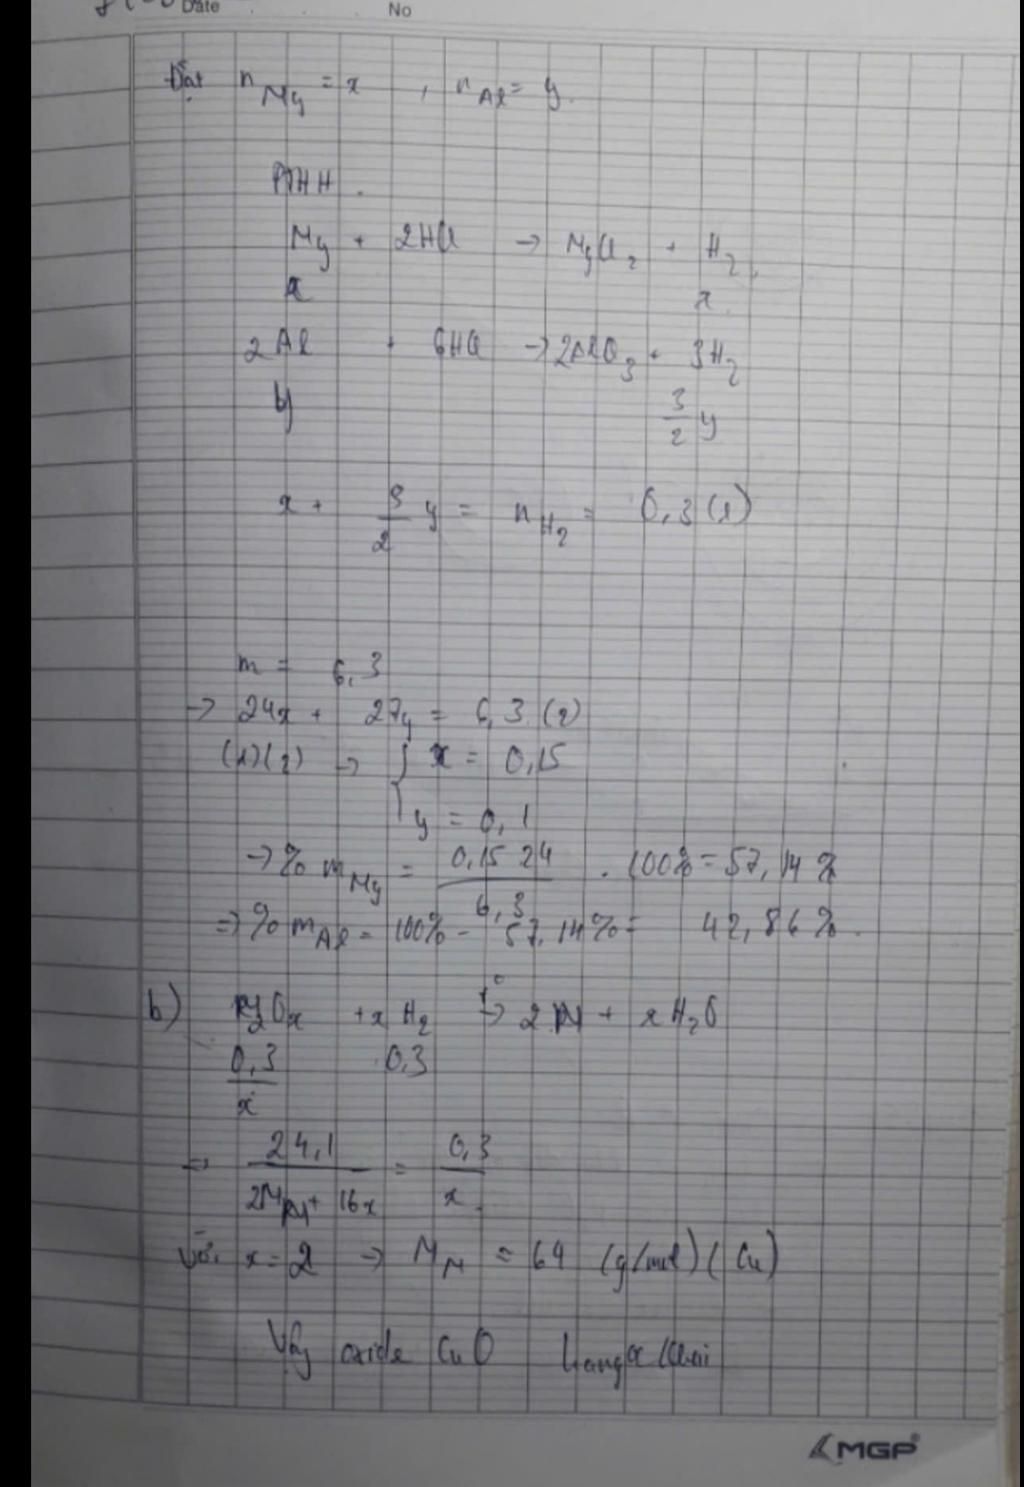 Date No
Đặt n Mg = x , n Al = y.
PTHH.
Mg + 2HCl → MgCl2 + H2
x x
2Al + 6HCl → 2AlCl3 + 3H2
y 3/2 y
x + 3/2 y = nH2 = 0,3 (1)
m = 6,3
→ 24x + 27y = 6,3 (2)
(1)(2) → { x = 0,15
y = 0,1
→ % m Mg = 0,15.24 / 6,3 . 100% = 57,14%
=> % m Al = 100% - 57,14% = 42,86%.
b) M2Ox + xH2 t°→ 2M + xH2O
0,3/x 0,3
=> 24,1 / 2MM + 16x = 0,3 / x
Với x = 2 → MM = 64 (g/mol) (Cu)
Vậy oxide CuO
MGP